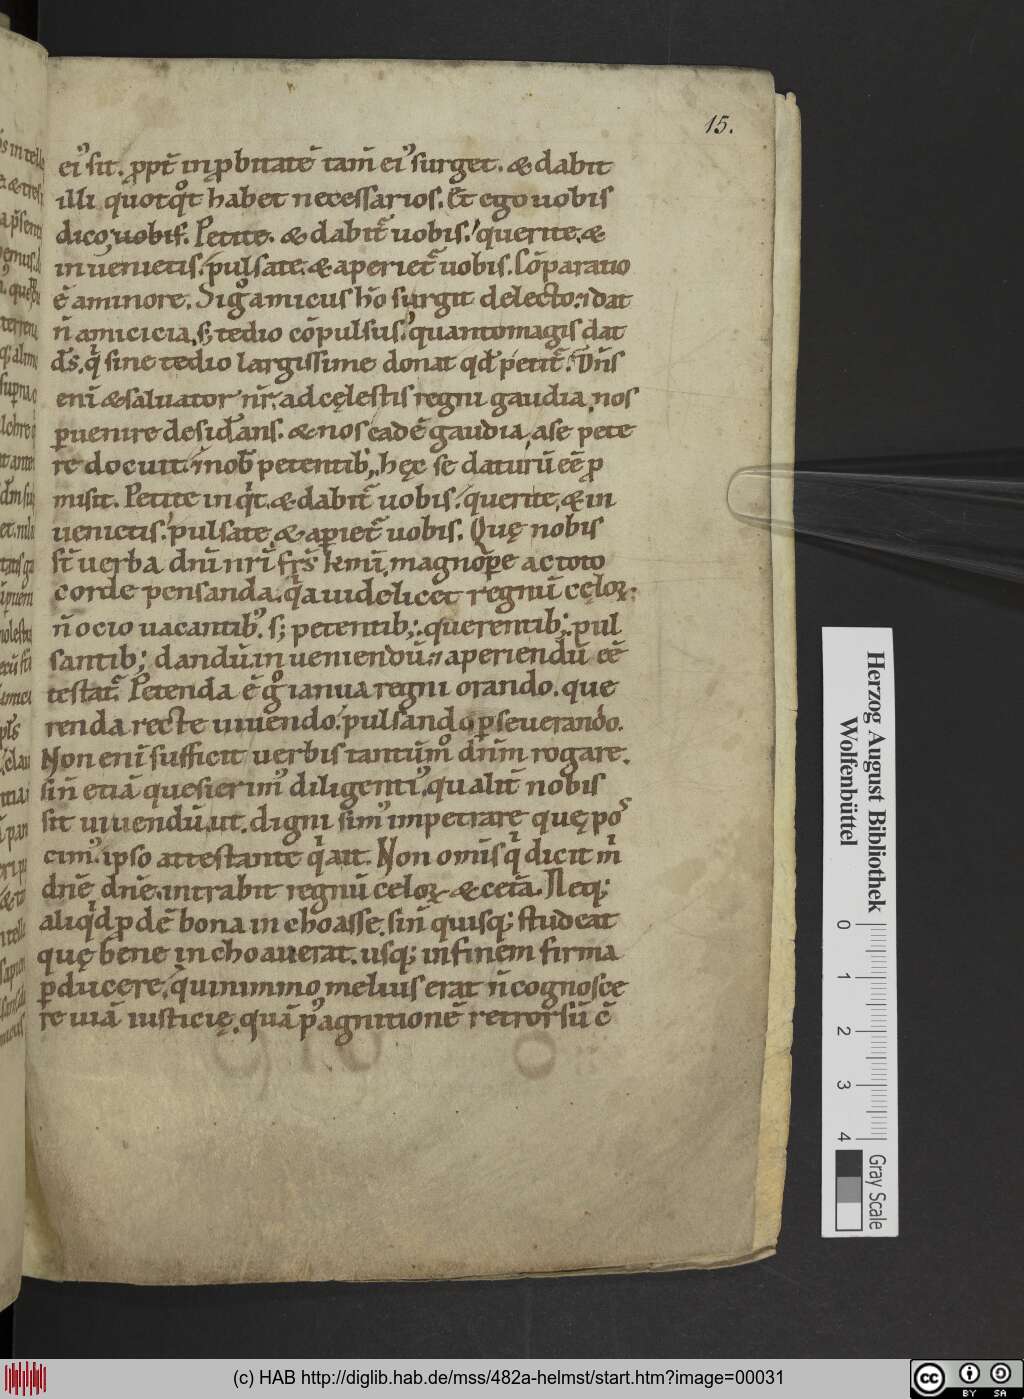 15.
ei᷒ sit. ꝓpt̄ inꝓbitatē tam̄ ei᷒ surget. & dabit
illi quotqͦt habet necessarios. Et ego uobis
dico uobis. Petite. & dabit᷑ uobis. querite. &
inuenietis. pulsate. & aperiet᷑ uobis. Cōparatio
ē aminore. Si gͦ amicus hō surgit delecto. ⁊ dat
n̄ amicicia, sꝫ tedio cōpulsus. quantomagis dat
d̄s. qͥ sine tedio largissime donat qd̄ petit᷑. Dn̄s
enī & saluator nr̄. ad cęlestis regni gaudia nos
ꝑuenire desid̄ans. & nos eadē gaudia, ase pete
re docuit. ⁊ nob̄ petentib᷒, hęc se daturū eē ꝓ
misit. Petite inqͥt. & dabit᷑ uobis. querite, & in
uenietis. pulsate, & apiet᷑ uobis. Quę nobis
st̄ uerba dn̄i nr̄i fr̄s km̄i, magnoꝑe ac toto
corde pensanda. qͥa uidelicet regnū cęloꝝ.
n̄ ocio uacantib᷒. sꝫ petentibꝫ. querentibꝫ. pul
santibꝫ dandū. inueniendū. ⁊ aperiendū eē
testat᷑. Petenda ē gͦ ianua regni orando. que
renda recte uiuendo. pulsando ꝑseuerando.
Non enī sufficit uerbis tantūmͦ dn̄m rogare.
sin̄ etiā quesierim᷒ diligenti᷒. qualit̄ nobis
sit uiuendū, ut digni sim᷒ impetrare quę pos
cim᷒. ipso attestante qͥ ait. Non omīs qͥ dicit mͥ
dnē dnē, intrabit regnū celoꝝ. & cetā. Neqꝫ
aliqͥd ꝓdē bona inchoasse. sin̄ quisqꝫ studeat
quę bene inchoauerat. usqꝫ infinem firma
ꝑducere, quinimmo melius erat n̄ cognosce
re uiā iusticię. quā p᷒ agnitionē retrorsū c̄
Herzog August Bibliothek
Wolfenbüttel
0 1 2 3 4
Gray Scale
(c) HAB http://diglib.hab.de/mss/482a-helmst/start.htm?image=00031
cc BY SA